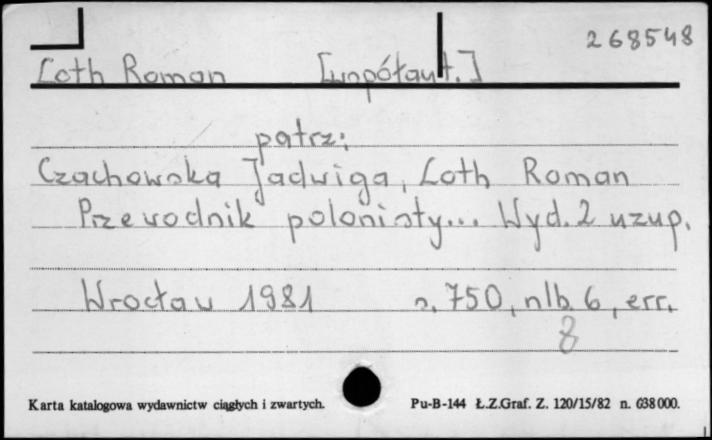 268548
Loth Roman [współaut.]
patrz:
Czachowska Jadwiga, Loth Roman
Przewodnik polonisty... Wyd. 2 uzup.
Wrocław 1981 s. 750, nlb. 6, err.
8
Karta katalogowa wydawnictw ciągłych i zwartych. Pu-B-144 Ł.Z.Graf. Z. 120/15/82 n. 638000.